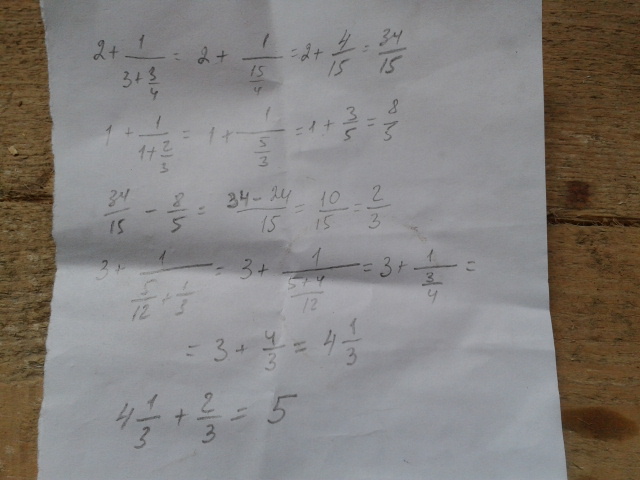 2 + 1/(3 + 3/4) = 2 + 1/(15/4) = 2 + 4/15 = 34/15
1 + 1/(1 + 2/3) = 1 + 1/(5/3) = 1 + 3/5 = 8/5
34/15 - 8/5 = (34 - 24)/15 = 10/15 = 2/3
3 + 1/(5/12 + 1/3) = 3 + 1/((5 + 4)/12) = 3 + 1/(3/4) =
= 3 + 4/3 = 4 1/3
4 1/3 + 2/3 = 5